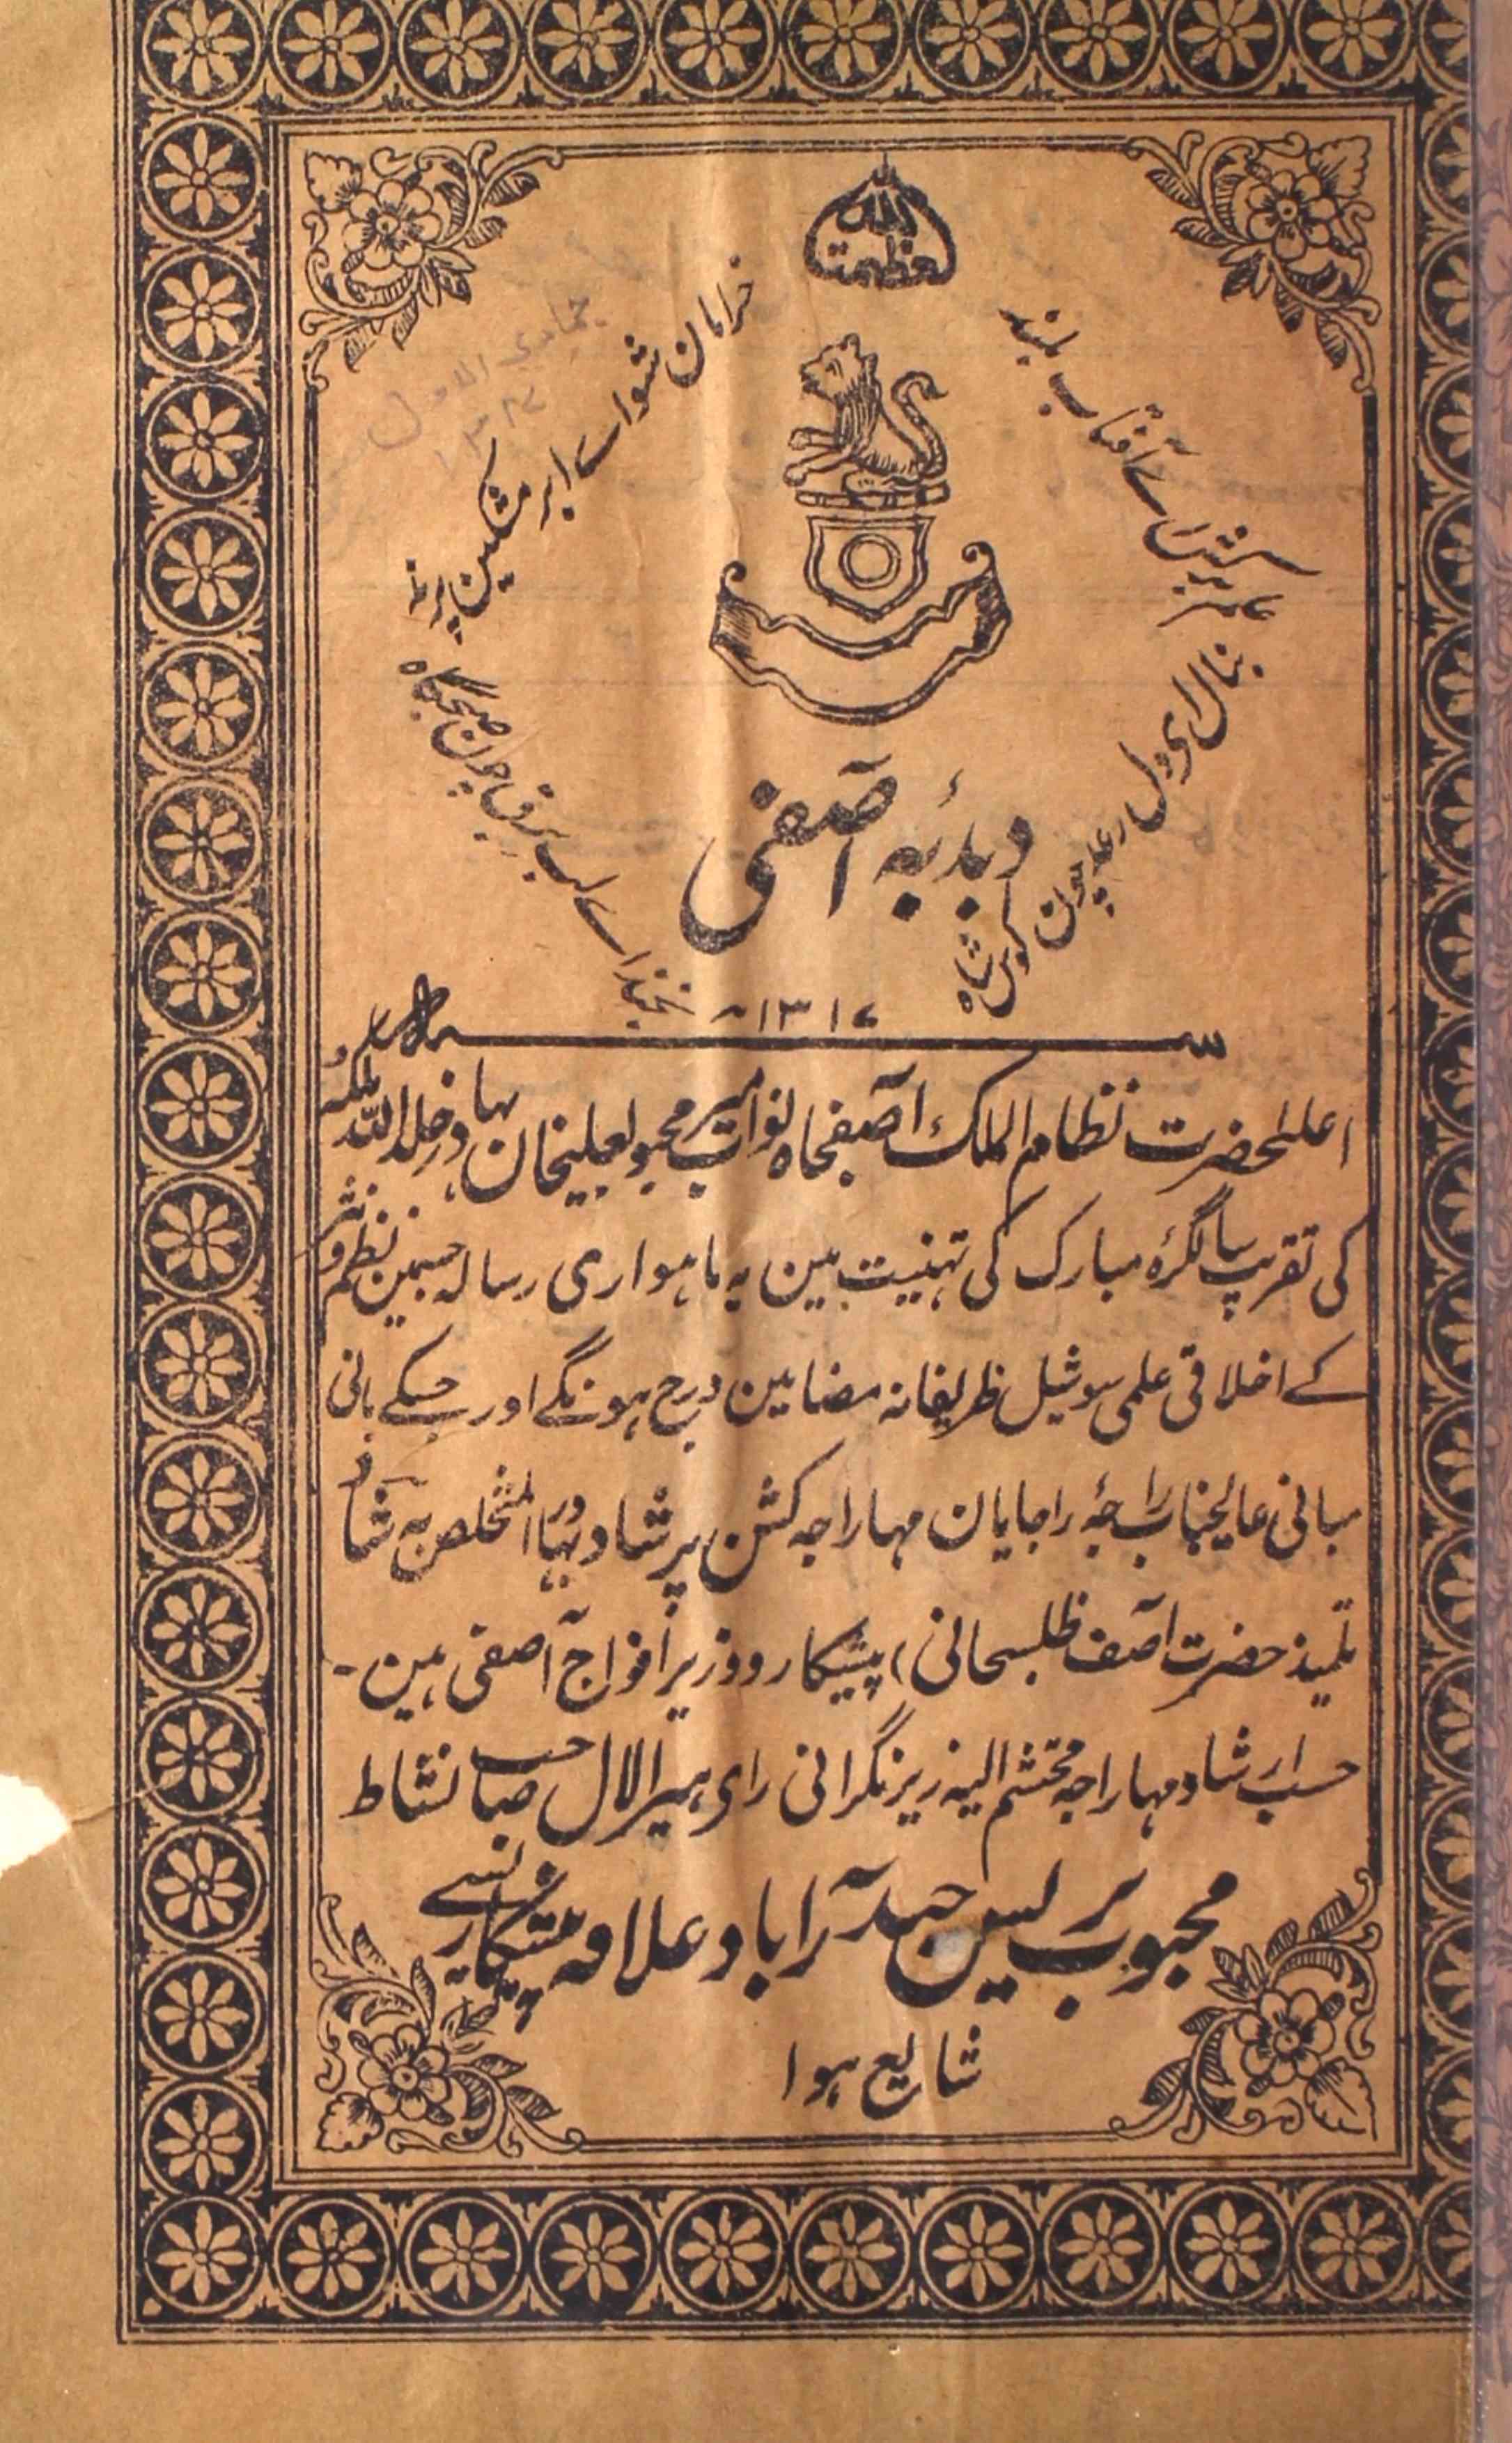 العظمت للہ
خرامان شو اے ابر مشکین پرند
بنال ای دل رعد چون کوس شاہ
بخند اے لب برق چون صبحگاہ
دبدبۂ آصفی
۱۳۱۷
اعلٰحضرت نظام الملک آصفجاہ نواب میر محبوبعلیخان بہادر خلد اللہ ملکہ
کی تقریب سالگرۂ مبارک کی تہنیت مین یہ ماہواری رسالہ جسمین نظم و نثر
کے اخلاقی علمی سوشیل ظریفانہ مضامین درج ہونگے اور جسکے بانی
مبانی عالیجناب راجۂ راجایان مہاراجہ کشن پرشاد بہادر المتخلص بہ شاد
تلمیذ حضرت آصف ظلسبحانی) پیشکار و وزیر افواج آصفی ہین۔
حسب ارشاد مہاراجہ محتشم الیہ زیر نگرانی رای ہیرالال صاحب نشاط
محبوب پریس حیدرآباد علاقہ پیشکاری سے
شایع ہوا
جمادی الاول